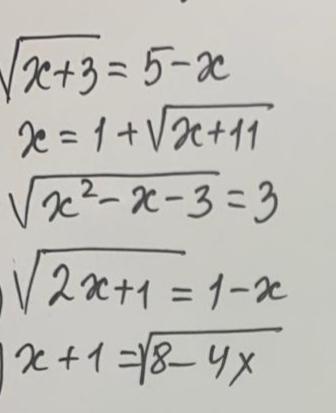 √(x+3) = 5-x
x = 1+√(x+11)
√(x²-x-3) = 3
√(2x+1) = 1-x
x+1 = √(8-4x)